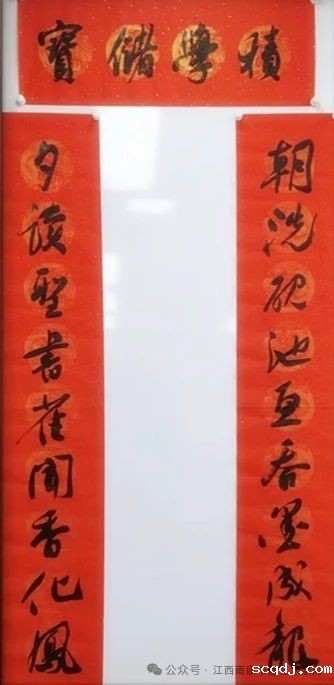 積學儲寶
朝洗硯池魚吞墨成龍
夕讀聖書雀聞香化鳳
公众号 · 江西南
scqdj.com